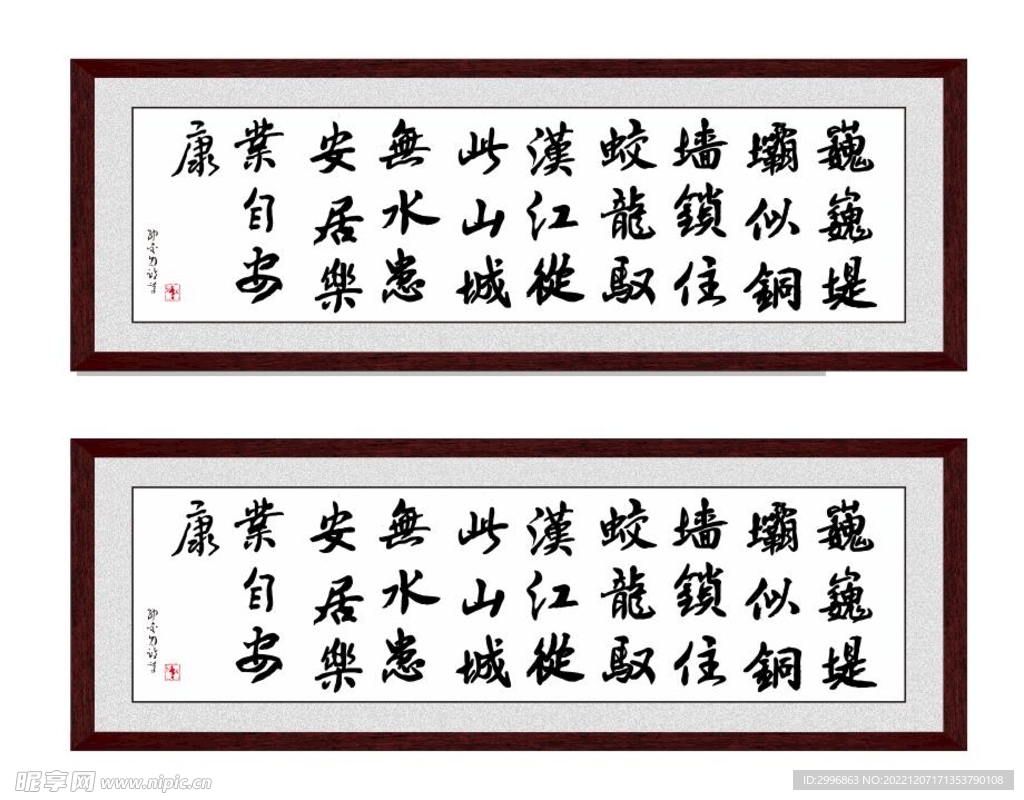 巍巍堤
壩似銅
墻鎖住
蛟龍馭
漢江從
此山城
無水患
安居樂
業自安
康
巍巍堤
壩似銅
墻鎖住
蛟龍馭
漢江從
此山城
無水患
安居樂
業自安
康
昵享网 www.nipic.cn
ID:2996863 NO:20221207171353790108